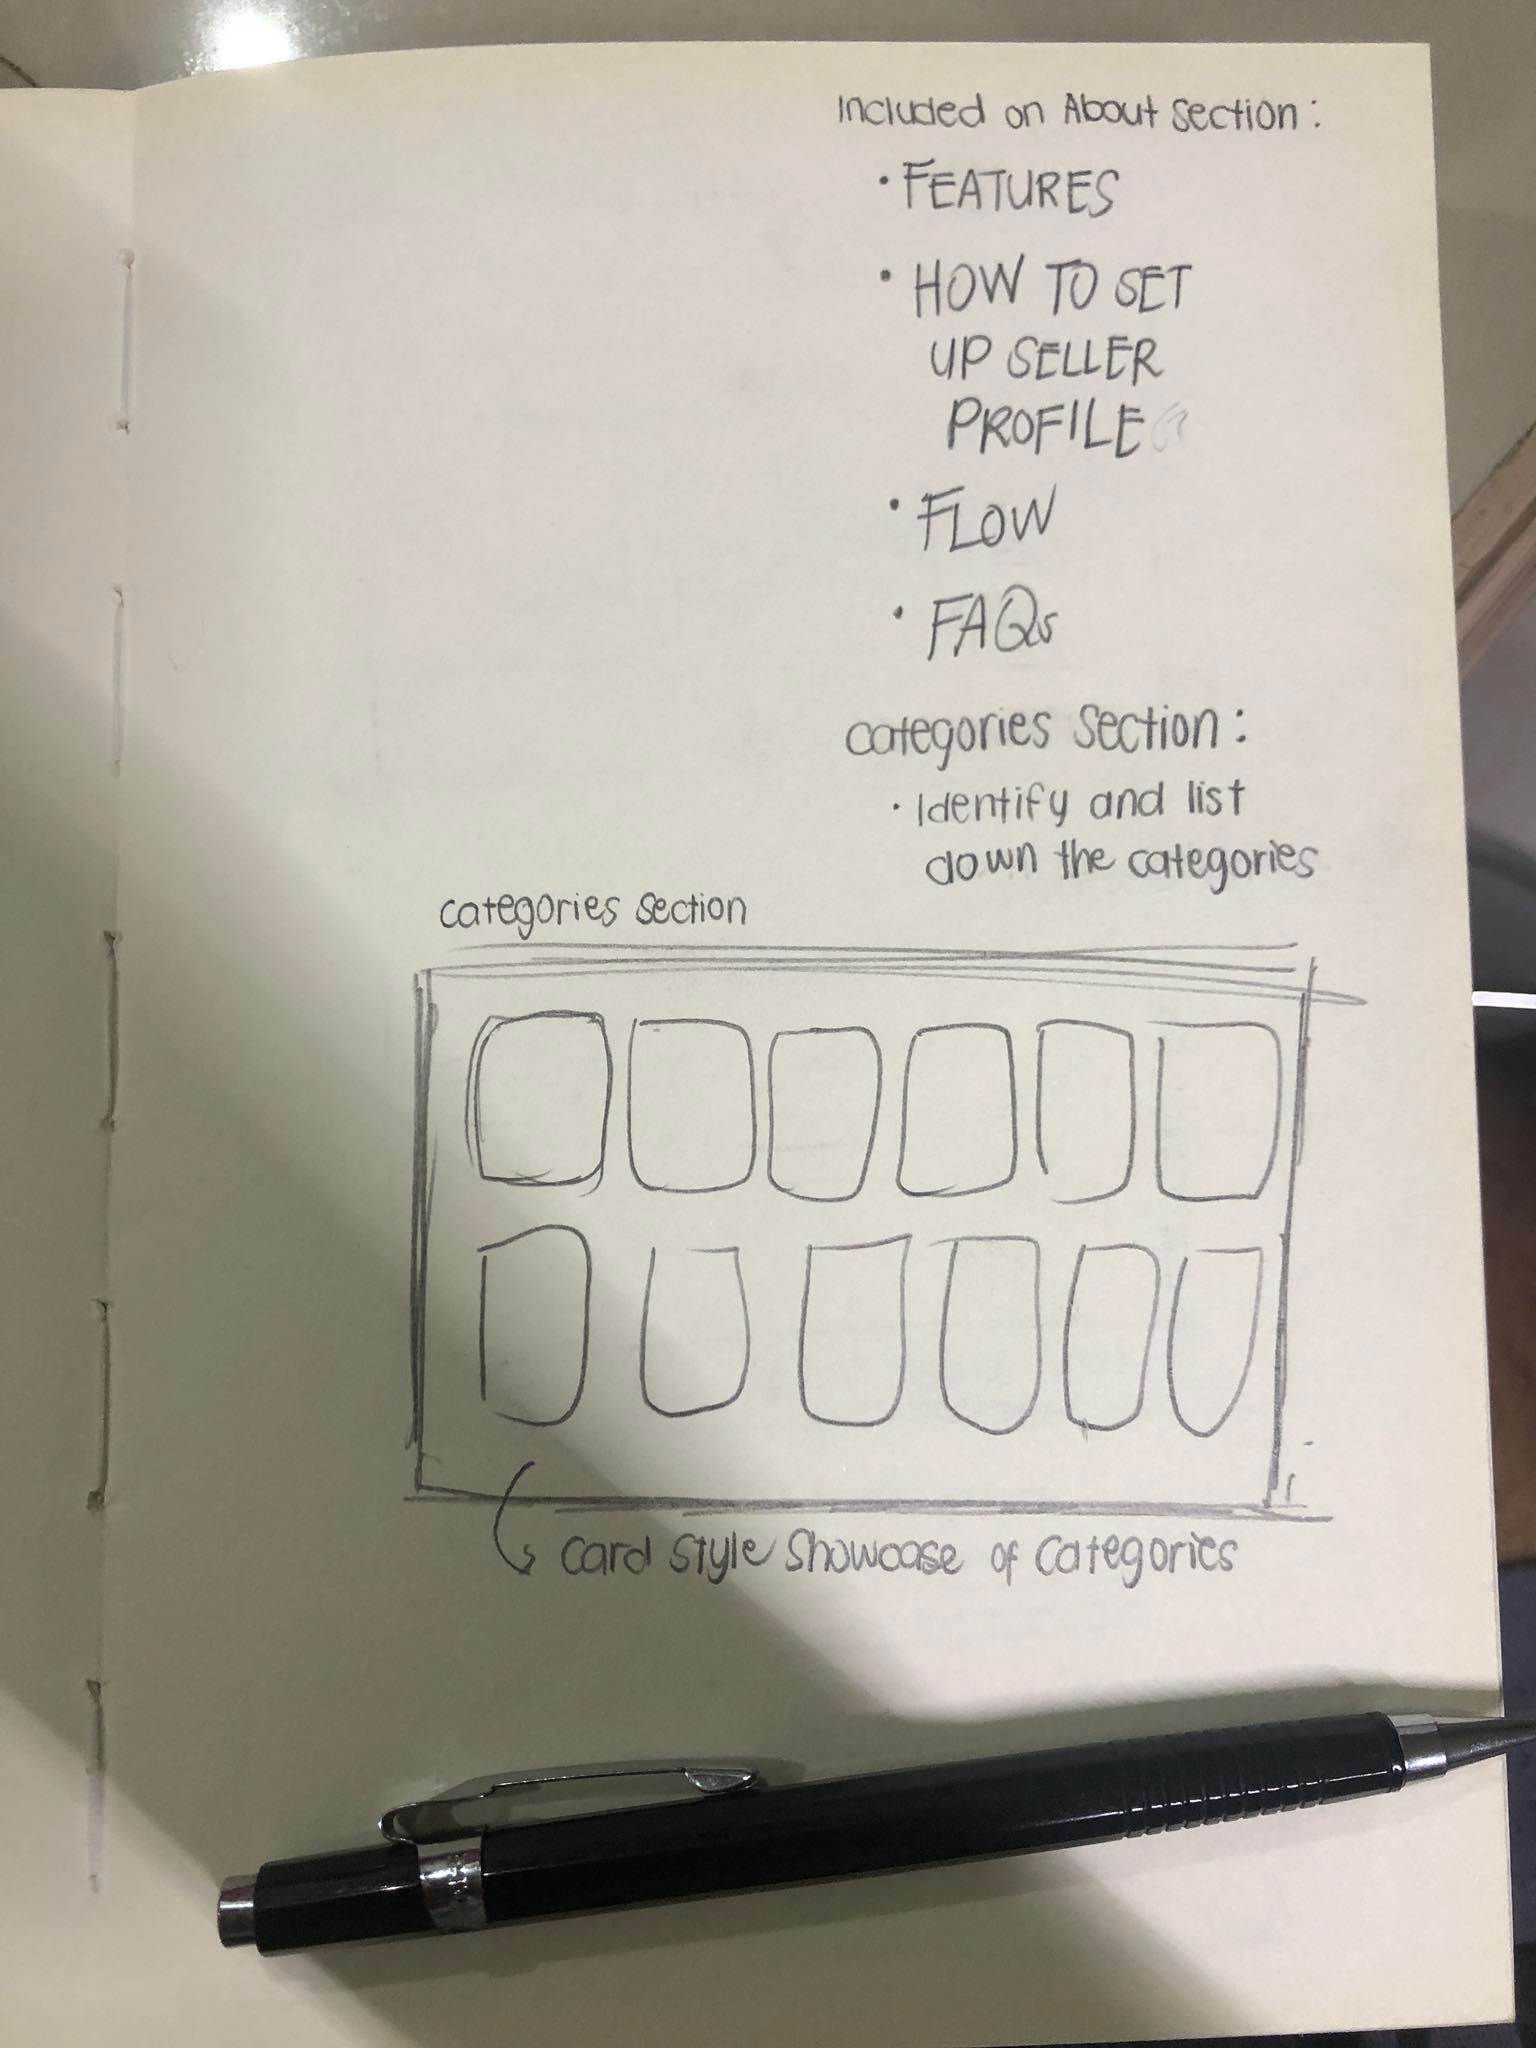 Included on About section:
• FEATURES
• HOW TO SET
UP SELLER
PROFILE
• FLOW
• FAQs
categories section:
• Identify and list
down the categories
categories section
card style showcase of categories